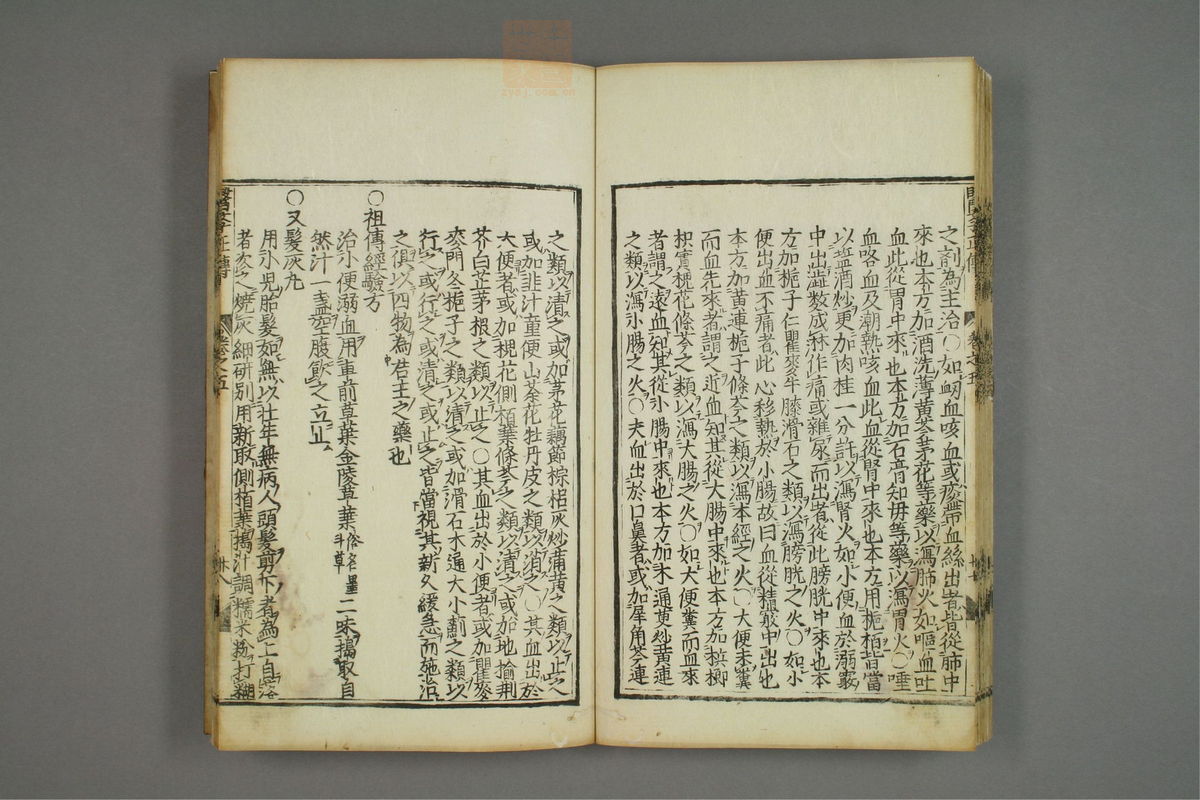 之劑為主治○如衂血咳血或痰帶血絲出者皆從肺中
來也本方加酒洗薄黃芩茅花等藥以瀉肺火如嘔血吐
血此從胃中來也本方加石膏知毋等藥以瀉胃火○唾
血咯血及潮熱咳血此血從腎中來也本方用梔栢皆當
以盐酒炒更加肉桂一分許以瀉腎火如小便血於溺竅
中出澁數成淋作痛或雜尿而出者從此膀胱中來也本
方加梔子仁瞿麥牛膝滑石之類以瀉膀胱之火○如小
便出血不痛者此心移熱於小腸故曰血從精竅中出也
本方加黃連梔子條芩之類以瀉本經之火○大便未糞
而血先來者謂之近血知其從大腸中來也本方加檳榔
枳實槐花條芩之類以瀉大腸之火○如大便糞而血來
者謂之遠血知其從小腸中來也本方加木通黃炒黃連
之類以瀉小腸之火○夫血出於口鼻者或加犀角芩連
之類以清之或加茅花藕節棕梠灰炒蒲黃之類以止之
或加韭汁童便山茶花牡丹皮之類以消之○其血出於
大便者或加槐花側栢葉條芩之類以清之或加地揄荆
芥白芷茅根之類以止之○其血出於小便者或加瞿麥
麥門冬梔子之類以清之或加滑石木通大小薊之類以
行之或行之或清之或止之皆當視其新久緩急而施治
之俱以四物為君主之藥也
○祖傳經驗方
治小便溺血用車前草葉金陵草葉俗名墨斗草二味搗取自
然汁一盞空腹飲之立止
○又髮灰丸
用小兒胎髮如無以壮年無病人頭髮剪下者為上自落
者次之燒灰細研别用新取側栢葉搗汁調糯米粉打糊
醫學正傳
卷之五
廿八